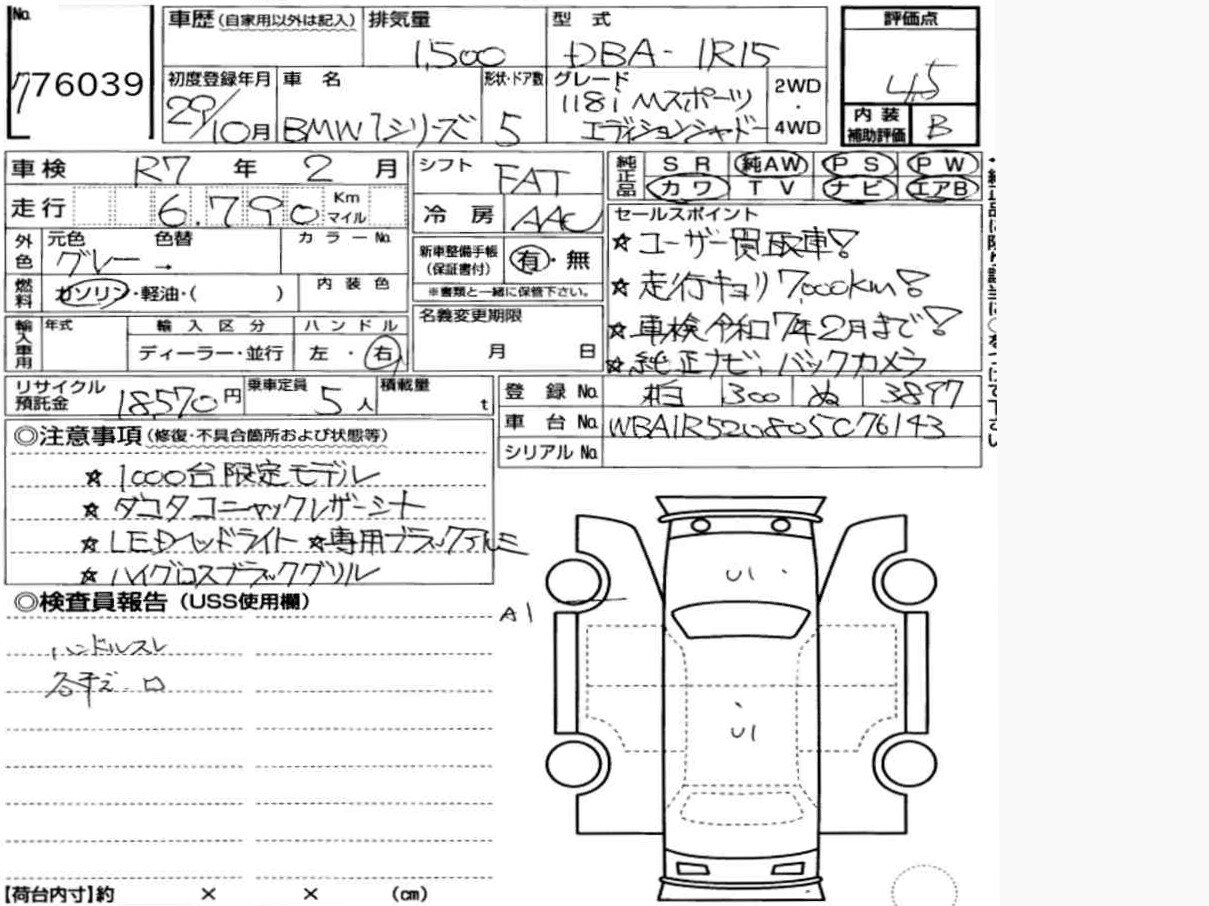 No. 車歴(自家用以外は記入) 排気量 型式 評価点
776039 1,500 DBA-1R15 4.5
初度登録年月 車名 形状・ドア数 グレード 2WD・4WD 内装補助評価
29/10月 BMW 1シリーズ 5 118i Mスポーツ B
エディションシャドー
車検 R7年 2月 シフト FAT 純正品 SR 純AW PS PW
走行 6.790 Km マイル 冷房 AAC カワ TV ナビ エアB
外色 元色 色替 カラーNo. 新車整備手帳(保証書付) 有・無 セールスポイント
グレー → ☆ユーザー買取車!
燃料 ガソリン・軽油・( ) 内装色 ※書類と一緒に保管下さい。 ☆走行キョリ7,000km!
輸入車用 年式 輸入区分 ハンドル 名義変更期限 ☆車検令和7年2月まで!
ディーラー・並行 左・右 月 日 ☆純正ナビ、バックカメラ
リサイクル預託金 18,570円 乗車定員 5人 積載量 t 登録No. 柏 300 ぬ 3897
車台No. WBA1R520805C76143
シリアルNo.
◎注意事項(修復・不具合箇所および状態等)
☆1000台限定モデル
☆ダコタコニャックレザーシート
☆LEDヘッドライト ☆専用ブラックアルミ
☆ハイグロスブラックグリル
◎検査員報告(USS使用欄)
ハンドルスレ
A1
U1
U1
【荷台内寸】約 × × (cm)